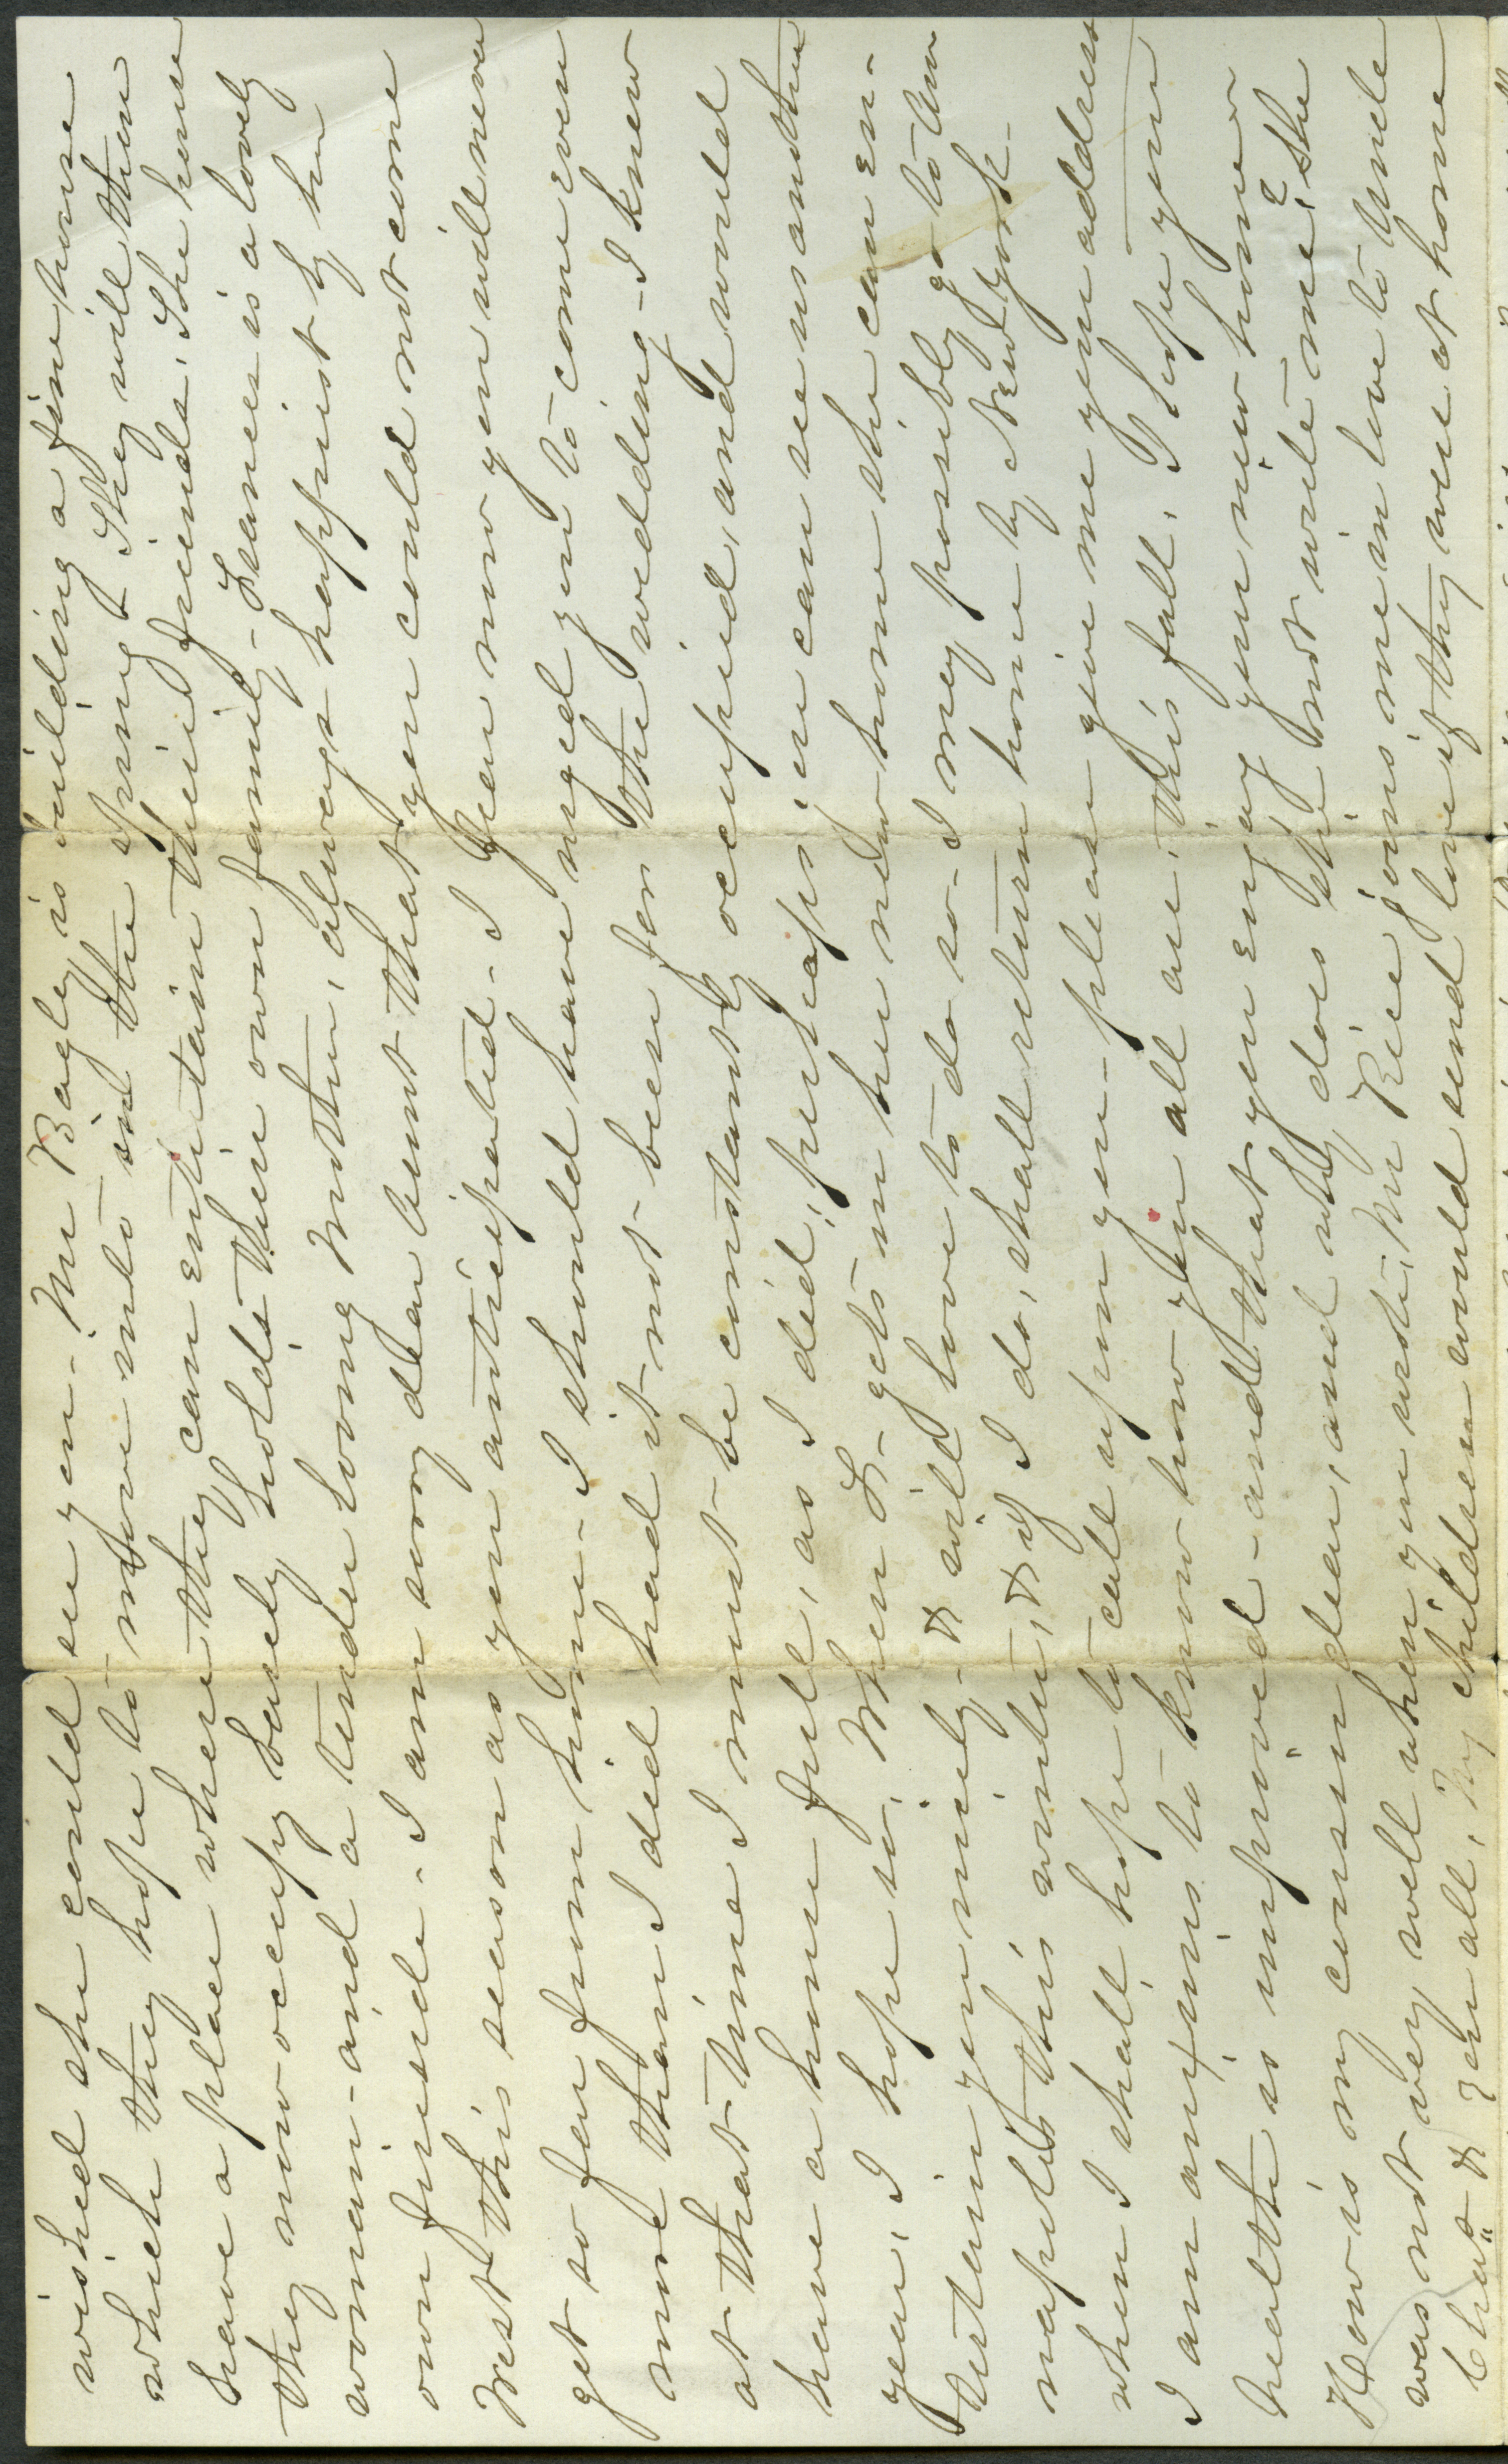 wished she could see you - Mr Bagley is building a fine house
which they hope to move into in the spring - They will then
have a place where they can entertain their friends. The house
they now occupy barely holds their own family - Frances is a lovely
woman - and a tender loving Mother, always happiest by her
own fireside - I am sorry dear Aunt that you could not come
West this season as you anticipated - I fear now you will never
get so far from home - I should have urged you to come even
more than I did had it not been for the wedding - I knew
at that time I must be constantly occupied, and would
have a house full, as I did; perhaps you can see us another
year, I hope so, When L - gets in her new home she can en-
tertain you nicely - & will love to do so - I may possibly go to
naples this winter, & if I do, shall return home by New York -
when I shall hope to call upon you - please give me your address
I am anxious to know how you all are, this fall, I hope your
health is improved - and that you enjoy your new home -
How is my cousin dear, and why does she not write me? She
was not very well when you wrote, Mr Rice joins me in love to Uncle
Chas & you all, My children would send love if they were at home